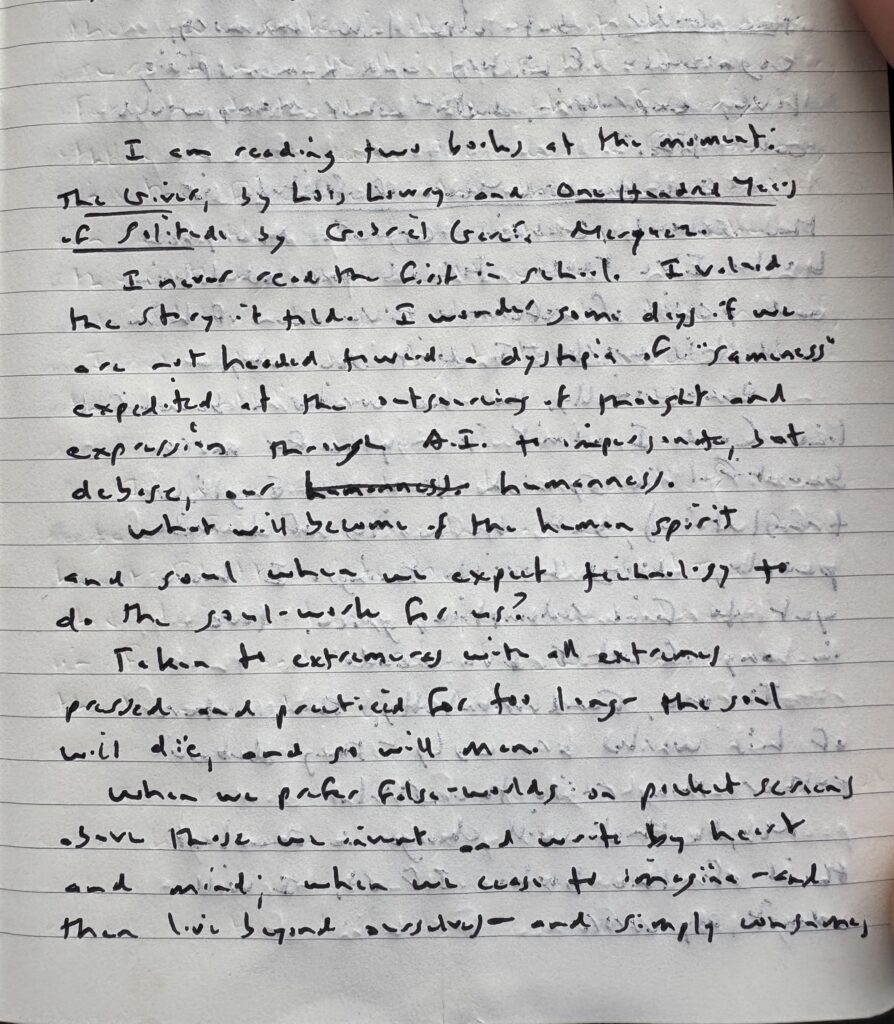 I am reading two books at the moment:
The Giver, by Lois Lowry and One Hundred Years
of Solitude by Gabriel Garcia Marquez.
I never read the first in school. I valued
the story it told. I wonder some days if we
are not headed toward a dystopia of "sameness"
expedited at the outsourcing of thought and
expression through A.I. to impersonate, but
debase, our humanness. humanness.
What will become of the human spirit
and soul when we expect technology to
do the soul-work for us?
Taken to with all extremes
pressed and practiced for too long- the soul
will die, and so will man.
When we prefer false-worlds on pocket screens
above those we invent and write by heart
and mind; when we cease to imagine -and
then live beyond ourselves- and simply consume,